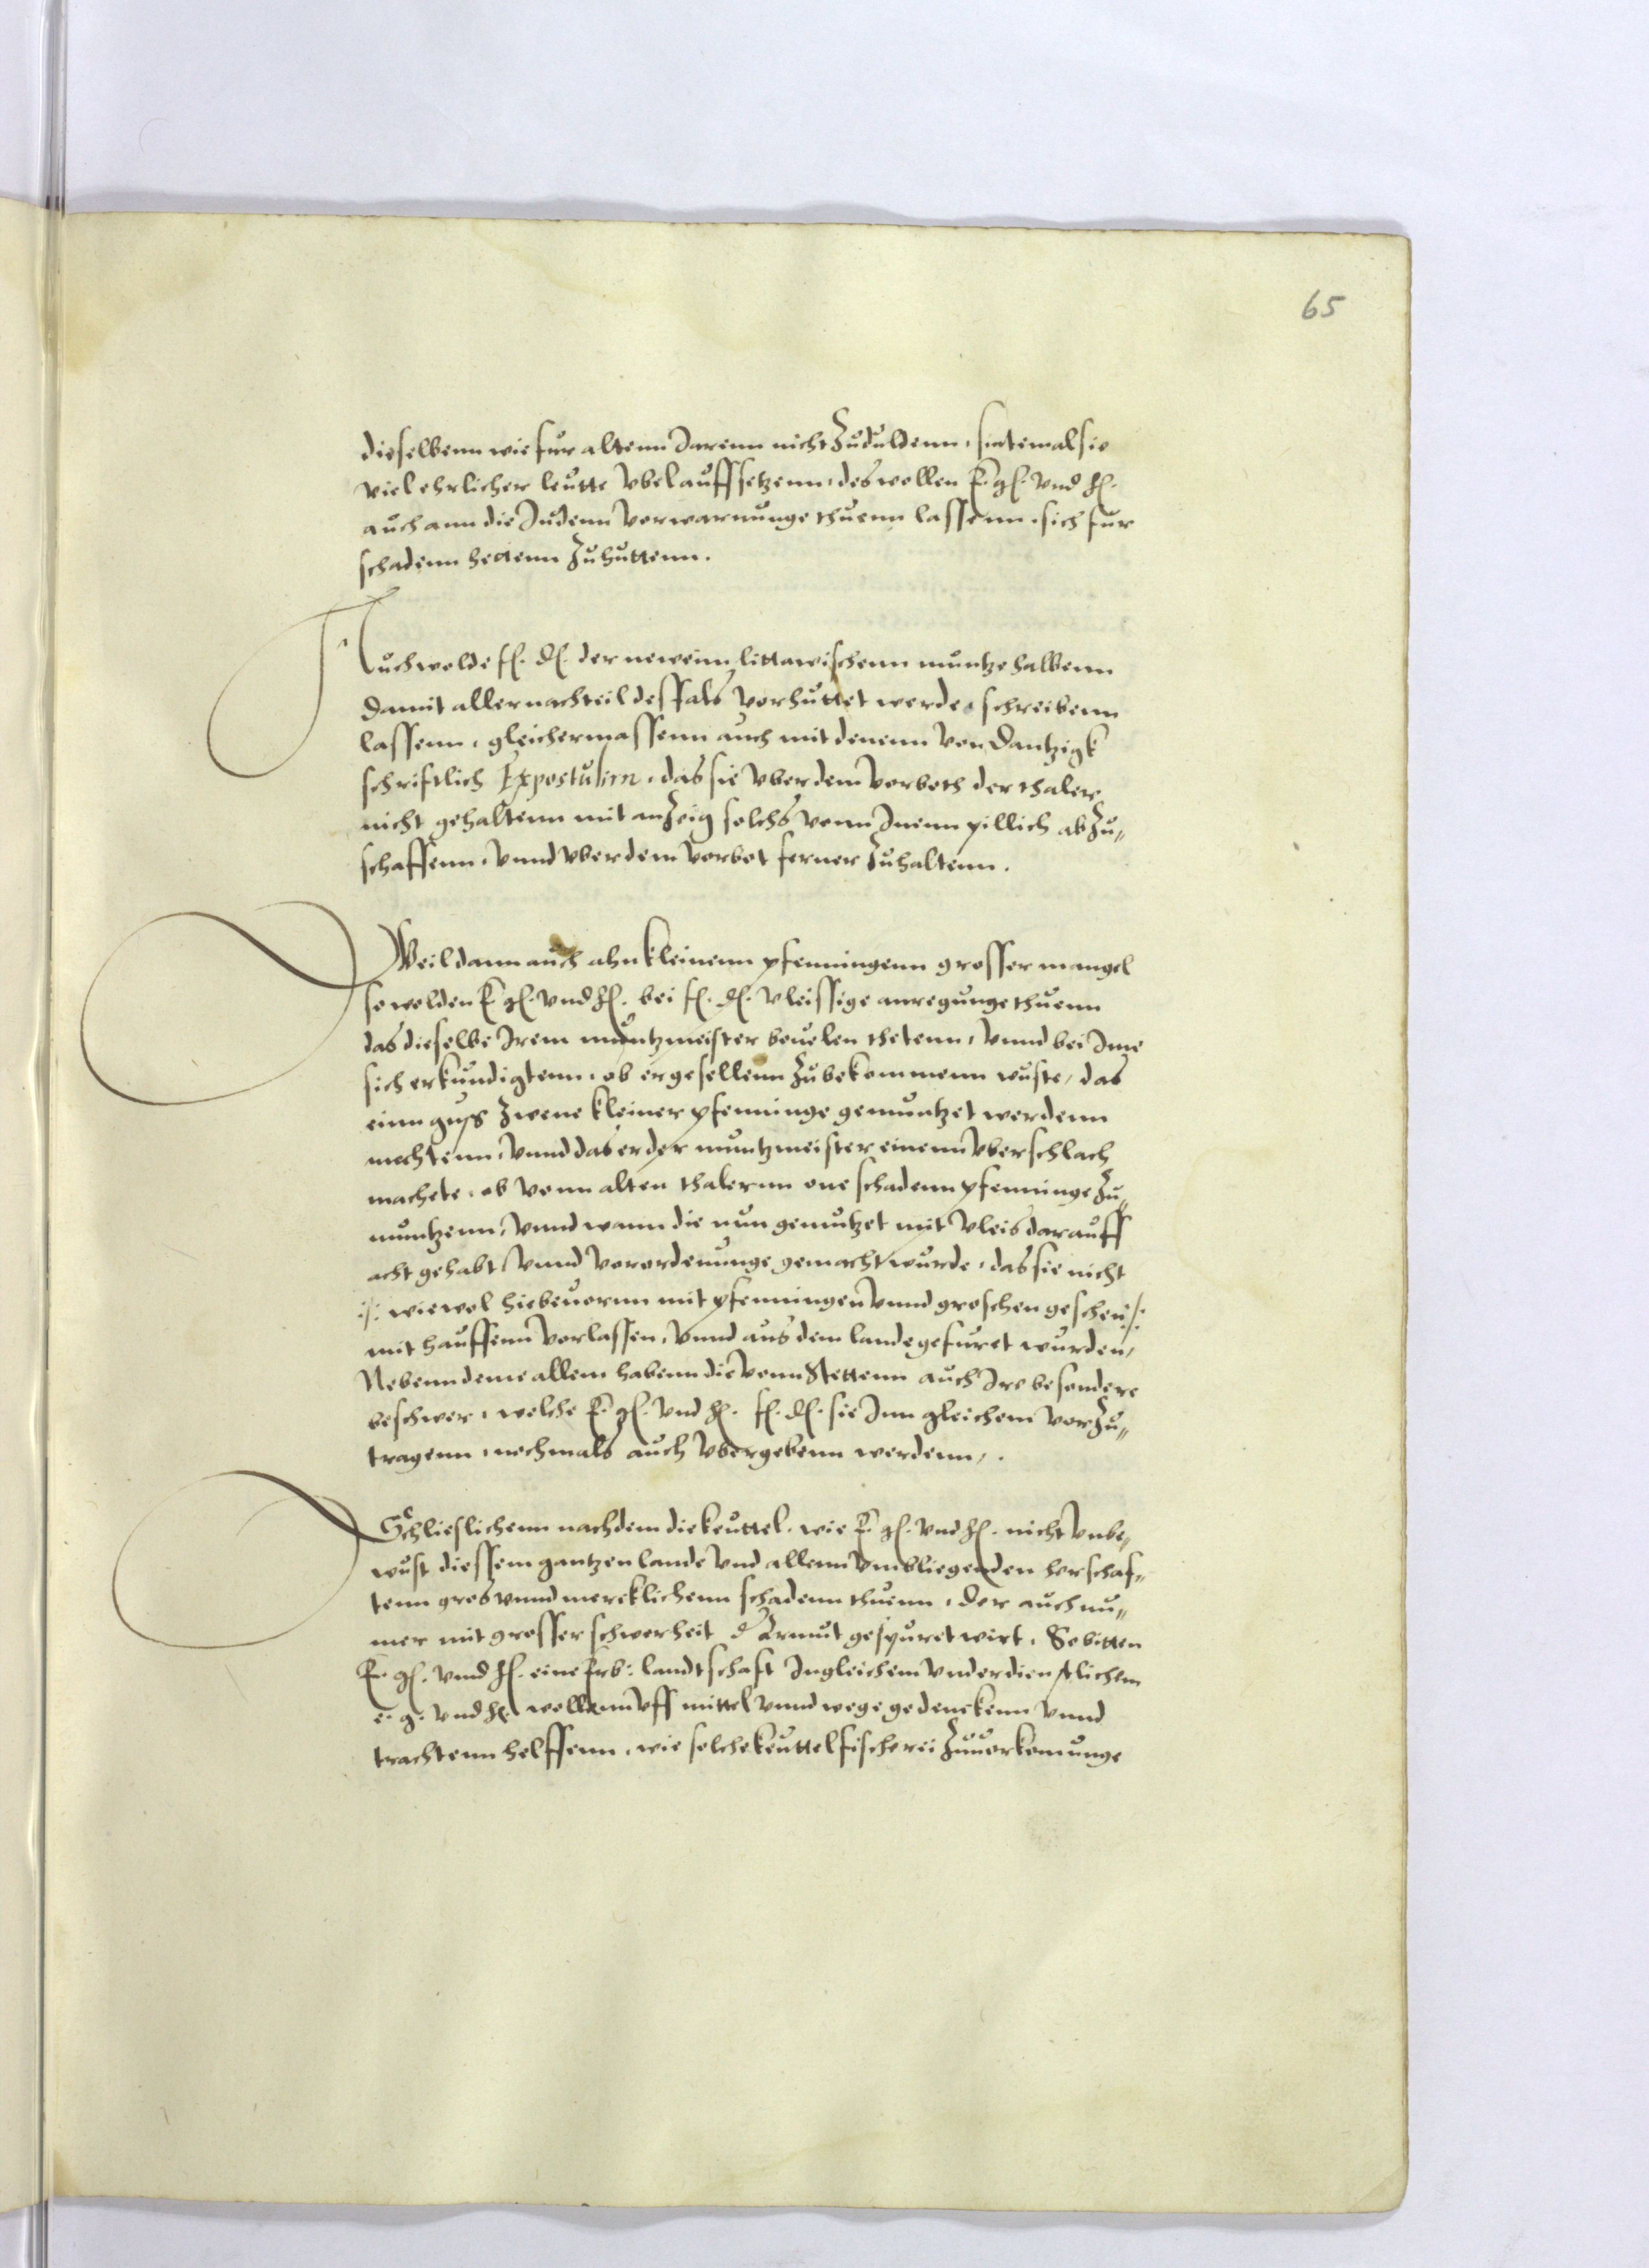 65
dieselbenn wie fur altenn Jarenn nicht zuduldenn, sintemal sie
viel ehrlicher leutte vbel auffsetzenn, des wollen E. g. vnd h.
auch ann die Judenn vorwarnunge thuenn lassenn, sich fur
schadenn hettenn zuhuttenn.
Auch wolde f. d. der neweinn littawischenn muntze halbenn
damit aller nachteil dessfals vorhuttet werde, schreibenn
lassenn, gleichermassenn auch mit denenn von Dantzigk
schriftlich Expostulirn, das sie vber dem vorboth der thaler
nicht gehaltenn mit anzeig solchs vonn Jnenn pillich abzu„
schaffenn, vnnd vber dem vorbot ferner zuhaltenn.
Weil dann auch ahn kleinenn pfenningenn grosser mangel
so wolden E. g. vnd h. bei f. d. vleissige anregunge thuenn
das dieselbe Jrem muntzmeister beuelen thetenn, vnnd bei Jme
sich erkundigtenn, ob er gesellenn zubekommenn wuste, das
einn guss zwene kleiner pfenninge gemuntzet werdenn
mochtenn, vnnd das er der muntzmeister einenn vberschlach
machete, ob vonn alten thalernn one schadenn pfenninge zu„
muntzenn, vnnd wann die nun gemutzet mit vleis darauff
acht gehabt vnnd vorordenunge gemacht wurde, das sie nicht
:/: wiewol hiebeuornn mit pfenningen vnnd groschen geschen :/:
mit hauffenn vorlassen, vnnd aus dem lande gefuret wurden,
Nebenn deme allem habenn die vonn Stettenn auch Jre besondere
beschwer, welche E. g. vnd h. f. d. sie Jnn gleichem vorzu„
tragenn, nochmals auch vbergebenn werdenn,.
Schlieslichenn nachdem die keuttel, wie E. g. vnd h. nicht vnbe„
wust diessem gantzen lande vnd allenn vmbliegenden herschaf„
tenn gros vnnd mercklichenn schadenn thuenn, der auch nu„
mer mit grosser schwerheit d Armut gespuret wirt, So bitten
E. g. vnnd h. eine Erb: landtschaft Jngleichem vnderdienstlichem
e. g. vnd h. wollenn vff mittel vnnd wege gedenckenn vnnd
trachtenn helffenn, wie solche keuttelfischerei zuuorkomunge